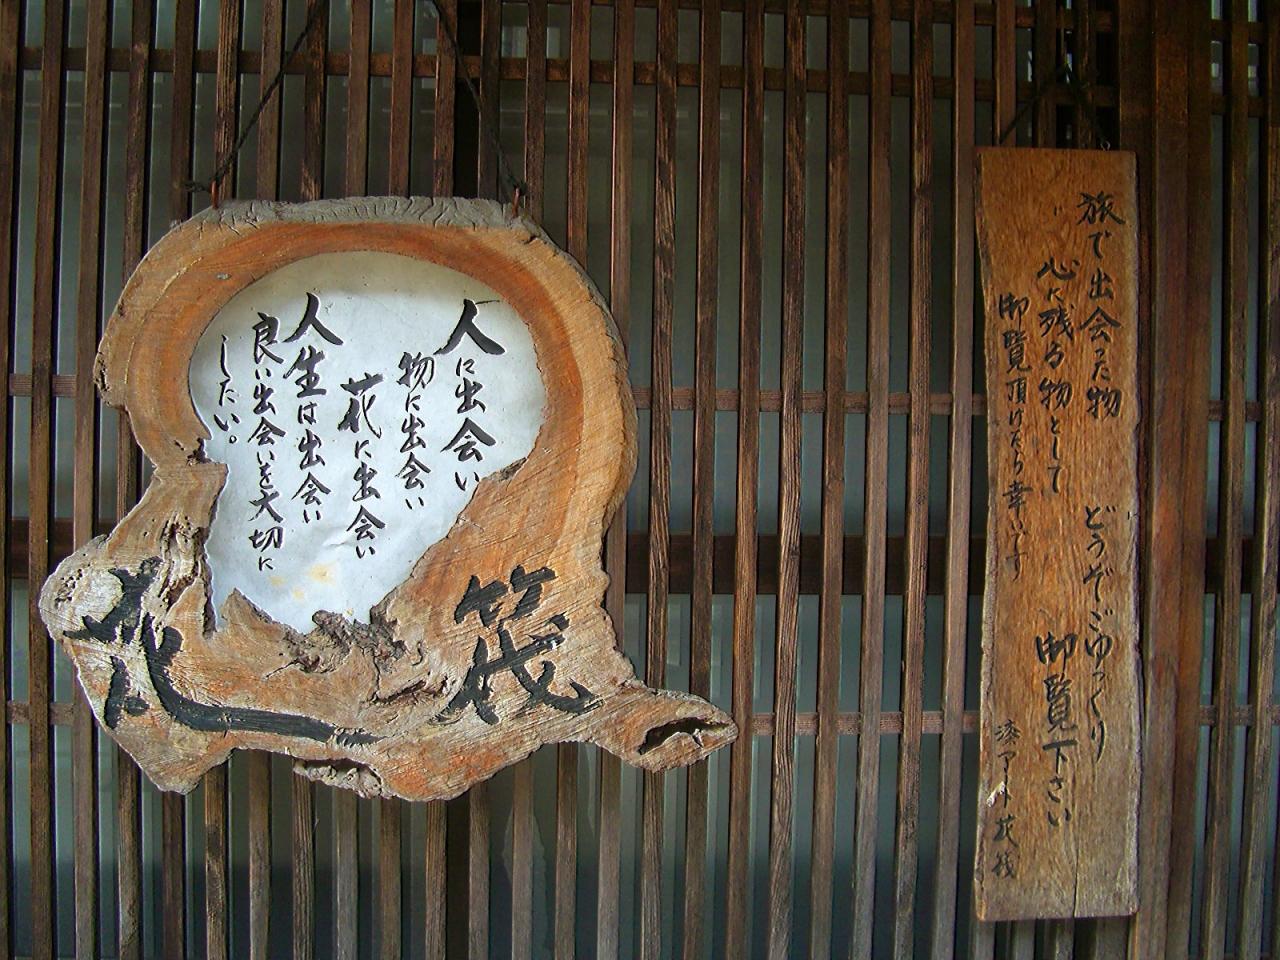 旅で出会った物
心に残る物として
御覧頂けたら幸いです
どうぞごゆっくり
御覧下さい
漆アート花筏
人に出会い
物に出会い
花に出会い
人生は出会い
良い出会いを大切に
したい。
花筏